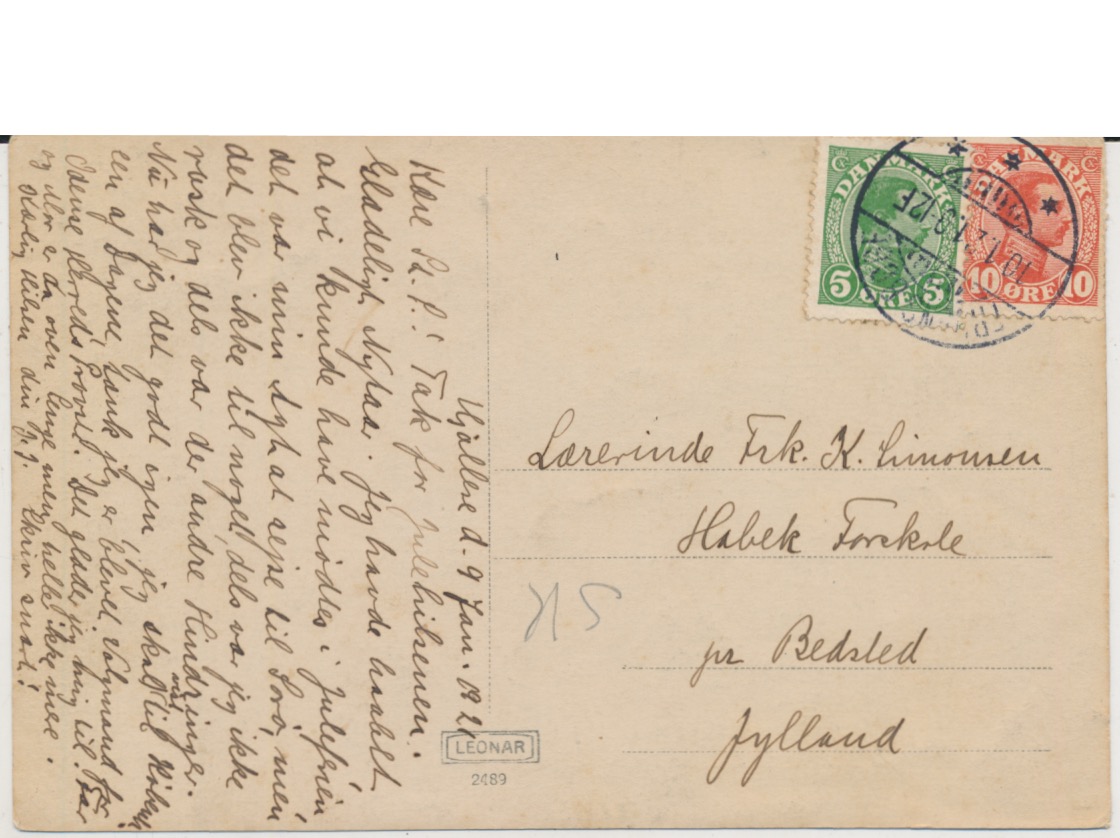 Hjallese d. 9 Jan. 1921
Kære K. S.! Tak for Julehilsenen.
Glædeligt Nytaar. Jeg havde haabet
at vi kunde have mødtes i Juleferien
det var min Agt at rejse til Sorø, men
det blev ikke til noget, dels var jeg ikke
rask og dels var der andre Hindringer.
Nu har jeg det godt igen jeg skal vist til
en af Dagene, tænk jeg er blevet Valgmand for
Odense Herreds Provsti. Det glæder jeg mig til. Her
og der er da oven lenge men heller ikke mere.
Kærlig Hilsen din J. J. Skriv snart!
DANMARK
5 ØRE 5
DANMARK
10 ØRE 10
10.1.21.9-12F
Lærerinde Frk. K. Simonsen
Habek Forskole
pr Bedsted
Jylland
LEONAR
2489